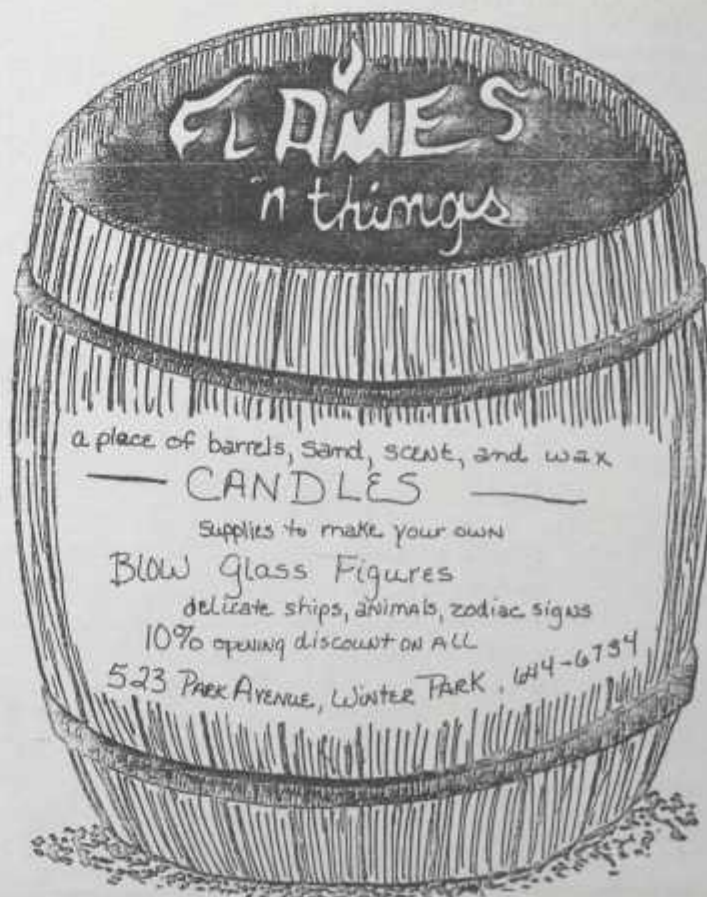 FLAMES
'n things
a place of barrels, sand, scent, and wax
CANDLES
supplies to make your own
Blow Glass Figures
delicate ships, animals, zodiac signs
10% opening discount on ALL
523 Park Avenue, Winter Park, 644-6734